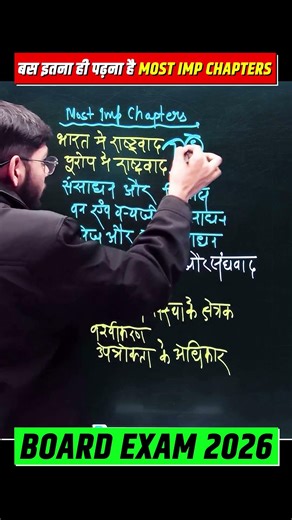 बस इतना ही पढ़ना है MOST IMP CHAPTERS
Most Imp Chapters
भारत मे राष्ट्रवाद
यूरोप मे राष्ट्रवाद
संसाधन और
वन एवं
और
और संघवाद
के क्षेत्रक
उपभोक्ता के अधिकार
BOARD EXAM 2026